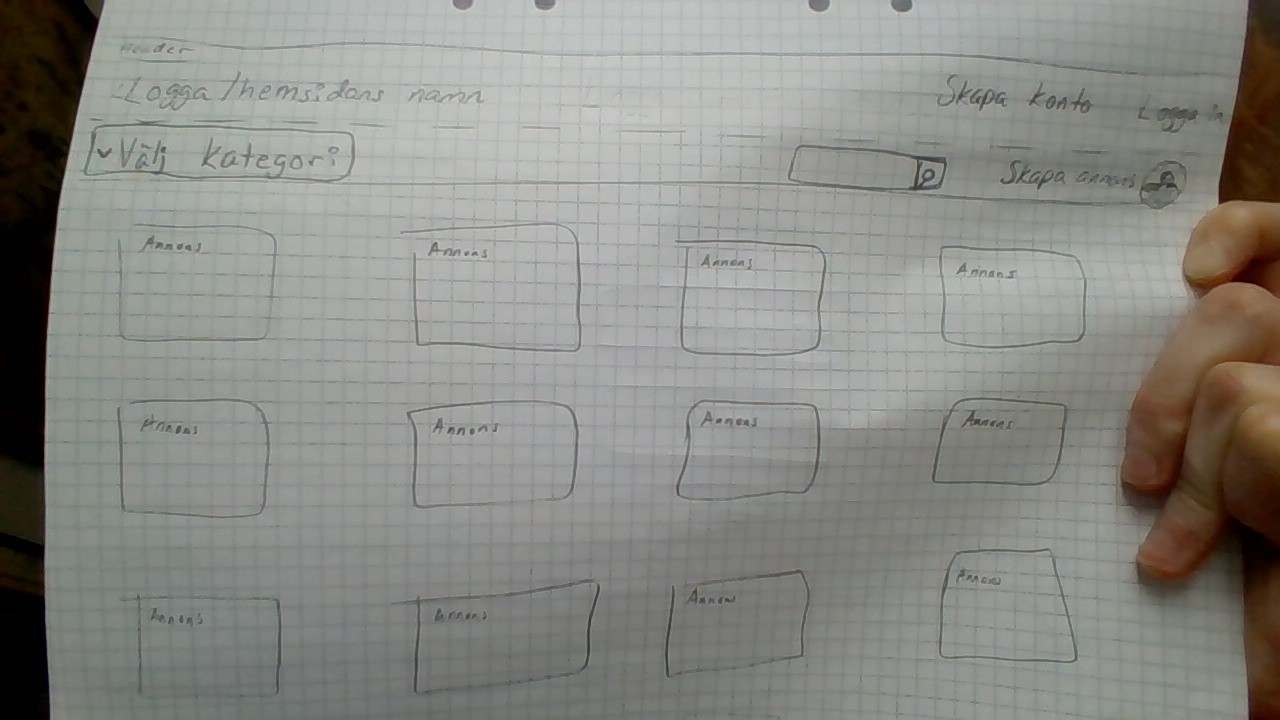 Header
Logga/hemsidans namn
Skapa konto
Logga in
Välj kategori
Skapa annons
Annons
Annons
Annons
Annons
Annons
Annons
Annons
Annons
Annons
Annons
Annons
Annons